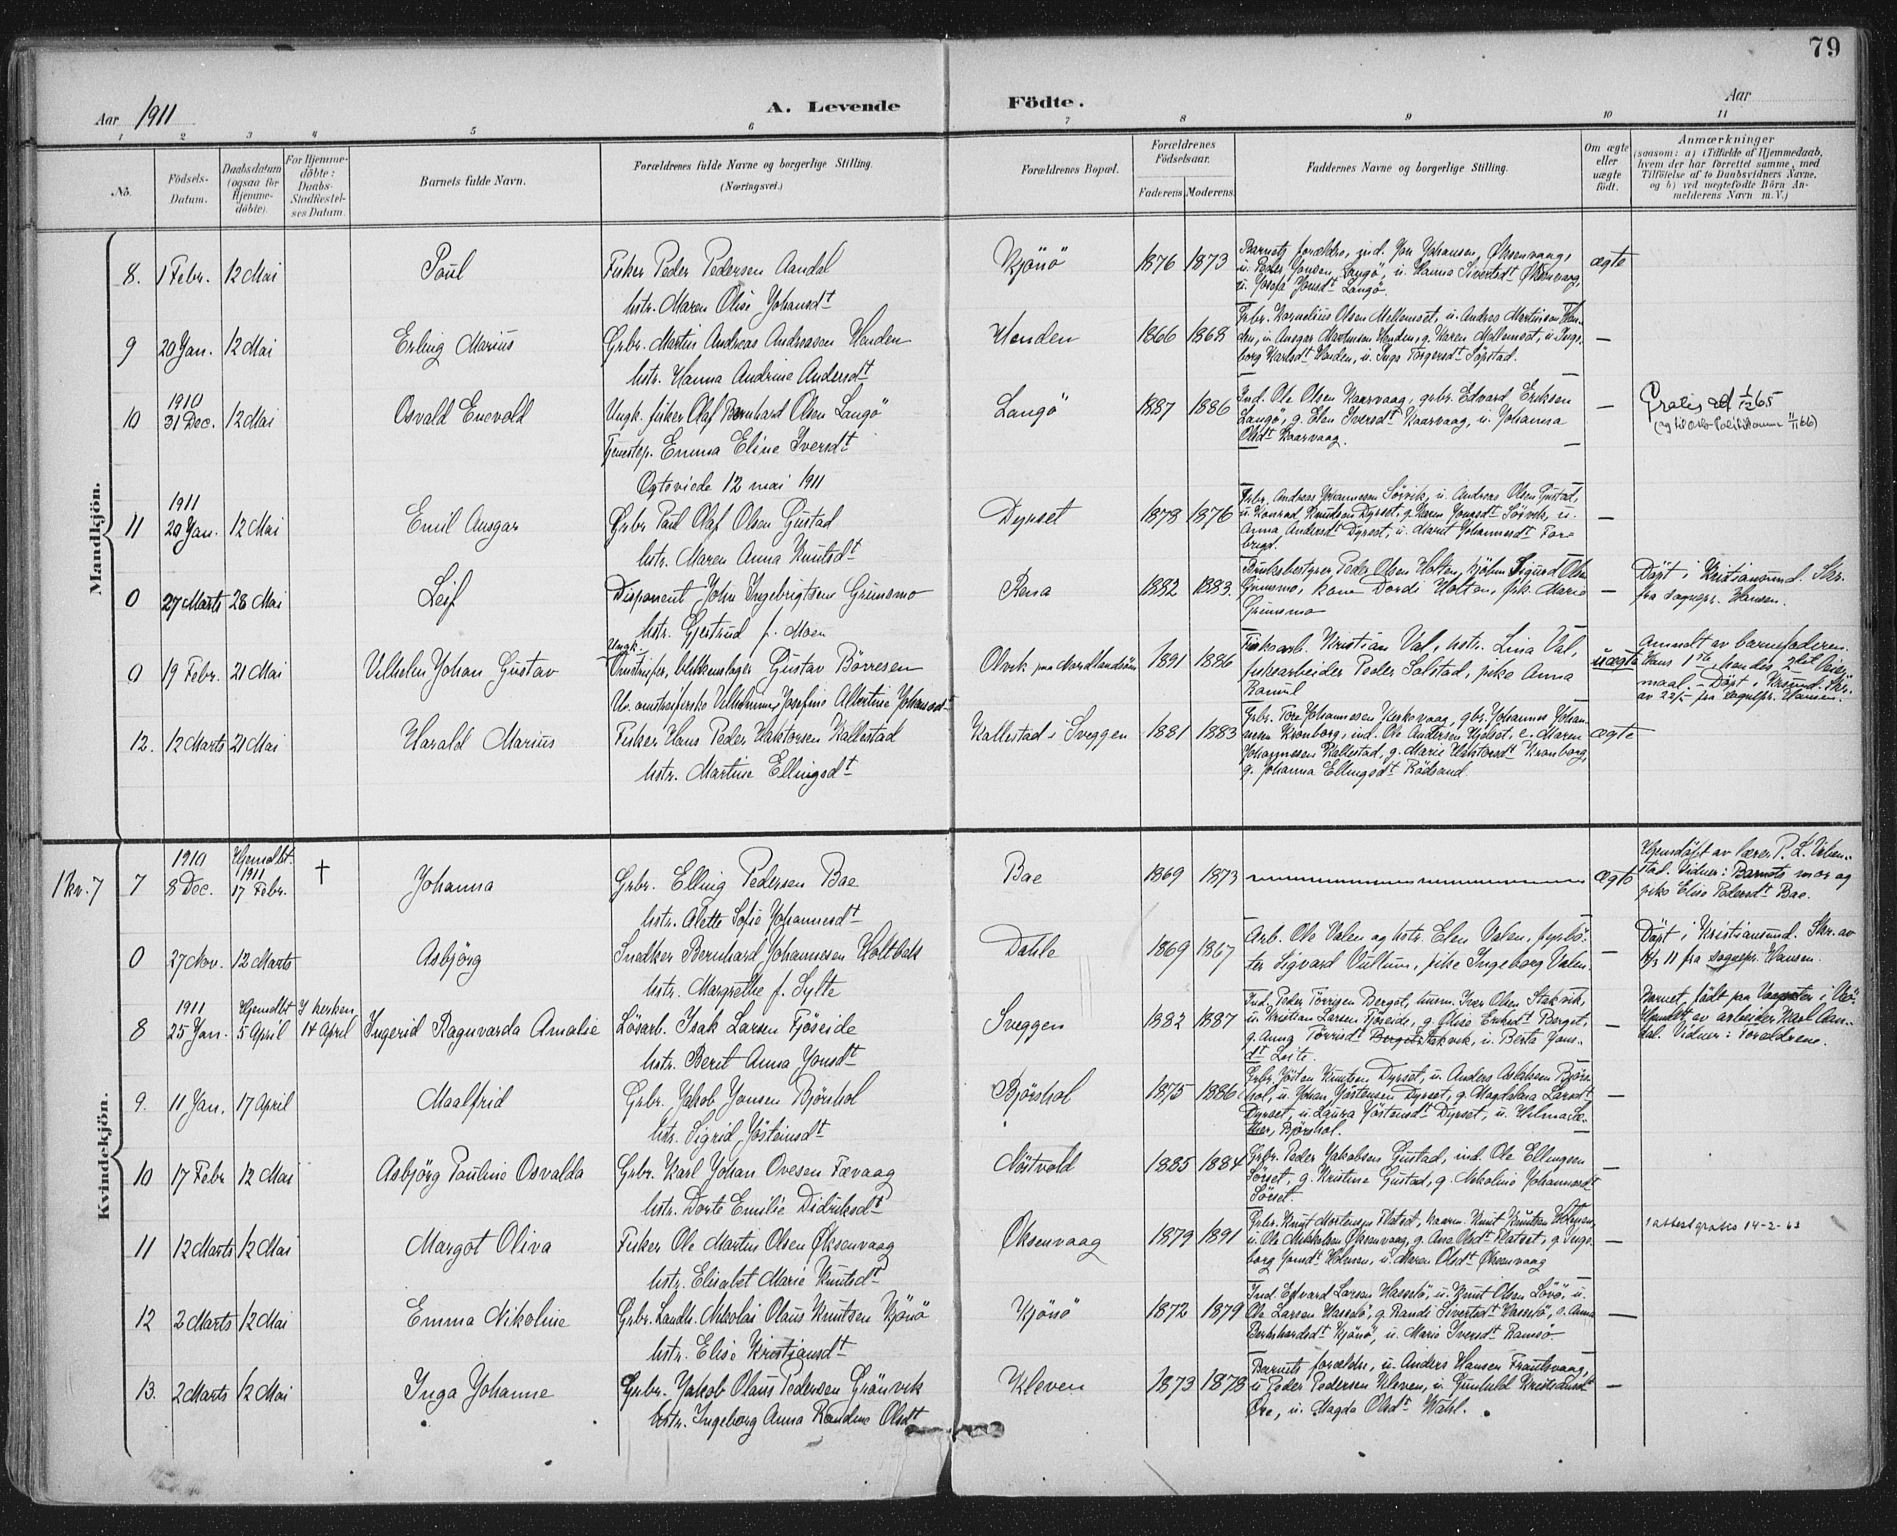 79
Aar 1911
A. Levende
Födte.
Aar
1 2 3 4 5 6 7 8 9 10 11
No.
Födsels-
Datum.
Daabsdatum
(ogsaa for
Hjemme-
döbte).
For Hjemme-
döbte:
Daabs-
Stadfæstel-
ses Datum.
Barnets fulde Navn.
Forældrenes fulde Navne og borgerlige Stilling.
(Næringsvei.)
Forældrenes Bopæl.
Forældrenes
Födselsaar.
Faderens Moderens.
Faddernes Navne og borgerlige Stilling.
Om ægte
eller
uægte
födt.
Anmærkninger
(saasom: a) i Tilfælde af Hjemmedaab,
hvem der har forrettet samme, med
Tilföielse af to Daabsvidners Navne,
og b) ved uægtefödte Börn An-
melderens Navn m. V.)
Mandkjön.
8. 1 Febr. 12 Mai Poul
Fisker Peder Pedersen Aandal
hstr. Maren Olise Johansdt
Kjönö 1876 1873
Barnets forældre, ind. Jon Johansen, Øksenvaag,
u. Peder Jonsen, Langö, u. Hanna Sivertsdt Øksenvaag,
u. Josefa Jonsdt Langö.
ægte
9 20 Jan. 12 Mai Erling Marius
Grbr. Martin Andreas Andreasen Henden
hstr. Hanna Andrine Andersdt
Henden 1866 1868
Grbr. Kornelius Olsen Mellemset, u. Andreas Martinsen Hen-
den, u. Ansgar Martinsen Henden, g. Karen Mellemset, u. Inge-
borg Karlsdt Henden, u. Inga Torgersdt
—
10 1910
31 Dec. 12 Mai Osvald Enevold
Ungk. fisker Olaf Bernhard Olsen Langö
Tjenestep. Emma Eline Iversdt
Egteviede 12 mai 1911
Langö 1887 1886
Ind. Ole Olsen Kaarvaag, grbr. Edvard Eriksen
Langö, g. Elen Iversdt Kaarvaag, u. Johanna
Olsdt Kaarvaag.
—
Gratis ad 1/12 65
11 1911
20 Jan. 12 Mai Emil Ansgar
Grbr. Paul Olaf Olsen Gustad
hstr. Maren Anna Knutsdt
Dyrset 1878 1876
Grbr. Andreas Johannessen Sörvik, u. Andreas Olsen Gustad,
u. Konrad Knudsen Dyrset, g. Karen Jonsdt Sörvik, u.
Anna Andersdt Dyrset, u. Marit Johannesdt
—
0 27 Marts 28 Mai Leif
Disponent John Ingebrigtsen Grimsmo
hstr. Gjertrud f. Moen
Rena 1882 1883.
Bruksbestyrer Peder Olsen Holten, kjöbm. Sigurd Olsen
Grimsmo, kone Dordi Holten, frk. Marie
Grimsmo
—
Döpt i Kristiansund. Skr.
fra sognepr. Hansen.
0 19 Febr. 21 Mai Vilhelm Johan Gustav
Ungk.
Omstreifer, blikkenslager Gustav Börresen
Uv. omstreiferske Vilhelmine Josefine Albertine Johansdt
Olvik paa Nordlandsöen 1891 1886
Fiskearb. Kristian Val, hstr. Lina Val,
fiskearbeider Peder Salstad, pike Anna
uægte
Anmeldt av barnefaderen.
Hans 1ste, hendes 2det leier-
maal. – Döpt i Krsund. Skr.
av 22/5 fra sognepr. Hansen.
12. 12 Marts 21 Mai Harald Marius
Fisker Hans Peder Hakstorsen Kallestad
hstr. Martine Ellingsdt
Kallestad i Sveggen 1881 1883
Grbr. Tore Johannesen gbr. Johannes Johan-
nesen Kronborg, ind. Ole Andersen e. Maren
Johannesen Kallestad, g. Marie Kronborg,
g. Johanna Ellingsdt Rödsand.
ægte
Kvindekjön.
1 kv. 7
7 1910
8 Dec. Hjemdbt.
1911
17 Febr. † Johanna
Grbr. Elling Pedersen Bae
hstr. Olette Sofie Johannesdt
Bae 1869 1873
Ægte
Hjemdöpt av lærer P. L.
stad. Vidner: Barnets mor og
pike Elise Pedersdt Bae.
0 27 Nov. 12 Marts Asbjörg
Snedker Bernhard Johannesen Holtbek
hstr. Margrethe f. Sylte
Dahle 1869 1867
Arb. Ole Valen og hstr. Elen Valen, fyrbö-
ter Sigvard Vullum, pike Ingeborg Valen
—
Döpt i Kristiansund. Skr. av
11 fra sognepr. Hansen.
8 1911
25 Jan. Hjemdbt
5 April I kirken
14 April Ingerid Ragnvarda Amalie
Lösarb. Isak Larsen Fjöseide
hstr. Berit Anna Jonsdt
Sveggen 1882 1887
Ind. Peder Törrisen Berget, husm. Iver Olsen Stakvik,
u. Kristian Larsen Fjöseide, g. Olise Eriksdt Berget,
g. Anna Törrisdt Stakvik, u. Berta Jons-
dt Leite.
—
Barnet födt paa i
Hjemdbt av arbeider Karl Aan-
dal. Vidner: Forældrene.
9. 11 Jan. 17 April Maalfrid
Grbr. Jakob Jonsen Björshol
hstr. Sigrid Jösteinsdt
Björshol 1875 1886
Grbr. Jösten Knutsen Dyrset, u. Anders Aslaksen Björs-
hol, u. Johan Jöstensen Dyrset, g. Magdalena Larsdt
Dyrset, u. Laura Jöstensdt Dyrset, u. Hilma
Björshol.
—
10 17 Febr 12 Mai Asbjörg Pauline Osvalda
Grbr. Karl Johan Ovesen Fævaag
hstr. Dorte Emilie Didriksdt
Nöstvold 1885 1884
Grbr. Peder Jakobsen Gustad, ind. Ole Ellingsen
Sörset, g. Kristine Gustad, g. Nikoline Johannesdt
Sörset.
—
11 12 Marts 12 Mai Margot Oliva
Fisker Ole Martin Olsen Øksenvaag
hstr. Elisabet Marie Knutsdt
Øksenvaag 1879 1891
Grbr. Knut Mortensen Flatset, Knut Knutsen Holmen,
u. Ole Mikkelsen Øksenvaag, g. Ane Olsdt Flatset, g. Inge-
borg Jonsdt Holmen, u. Maren Olsdt Øksenvaag
—
1 attest gratis 14-2-63
12 2 Marts 12 Mai Emma Nikoline
Grbr. Landh. Nikolai Olaus Knutsen Kjönö
hstr. Elise Kristiansdt
Kjönö 1872 1879
Ind. Edvard Larsen Hasselö, u. Knut Olsen Lövö, u.
Ole Larsen Hasselö, g. Randi Sivertsdt Hasselö, e. Anna
Bernhardsdt Kjönö, u. Marie Iversdt Ramsö
—
13. 2 Marts 12 Mai Inga Johanne
Grbr. Jakob Olaus Pedersen Grönvik
hstr. Ingeborg Anna Randine Olsdt
Kleven 1873 1878
Barnets forældre, u. Anders Hansen Frantsvaag,
u. Peder Pedersen Kleven, u. Gunhild Kristiansdt
Øre, u. Magda Olsdt Wahl.
—